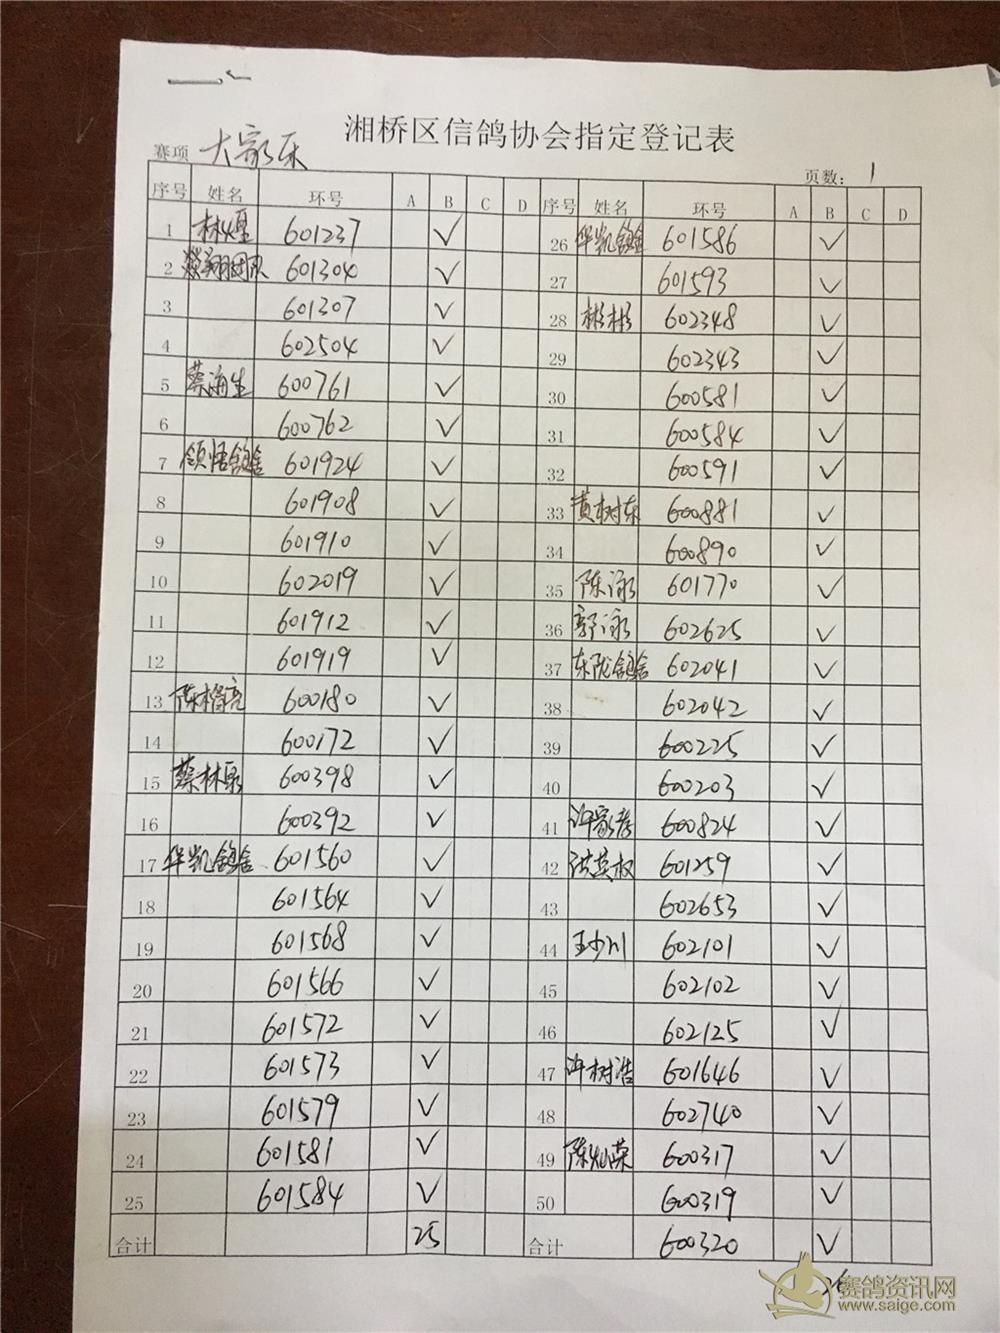 湘桥区信鸽协会指定登记表
赛项 大家乐
页数: 1
序号 姓名 环号 A B C D 序号 姓名 环号 A B C D
1 林煃 601237 √ 26 华凯鸽舍 601586 √
2 燚翔团队 601304 √ 27 601593 √
3 601307 √ 28 彬彬 602348 √
4 602504 √ 29 602343 √
5 蔡海生 600761 √ 30 600581 √
6 600762 √ 31 600584 √
7 领悟鸽舍 601924 √ 32 600591 √
8 601908 √ 33 黄树东 600881 √
9 601910 √ 34 600890 √
10 602019 √ 35 陈泳 601770 √
11 601912 √ 36 郭泳 602625 √
12 601919 √ 37 东陇鸽舍 602041 √
13 陈楷亮 600180 √ 38 602042 √
14 600172 √ 39 600225 √
15 蔡林泉 600398 √ 40 600203 √
16 600392 √ 41 许家孝 600824 √
17 华凯鸽舍 601560 √ 42 洪英权 601259 √
18 601564 √ 43 602653 √
19 601568 √ 44 王少川 602101 √
20 601566 √ 45 602102 √
21 601572 √ 46 602125 √
22 601573 √ 47 许树浩 601646 √
23 601579 √ 48 602740 √
24 601581 √ 49 陈灿荣 600317 √
25 601584 √ 50 600319 √
合计 25 合计 600320 √
26
赛鸽资讯网
www.saige.com